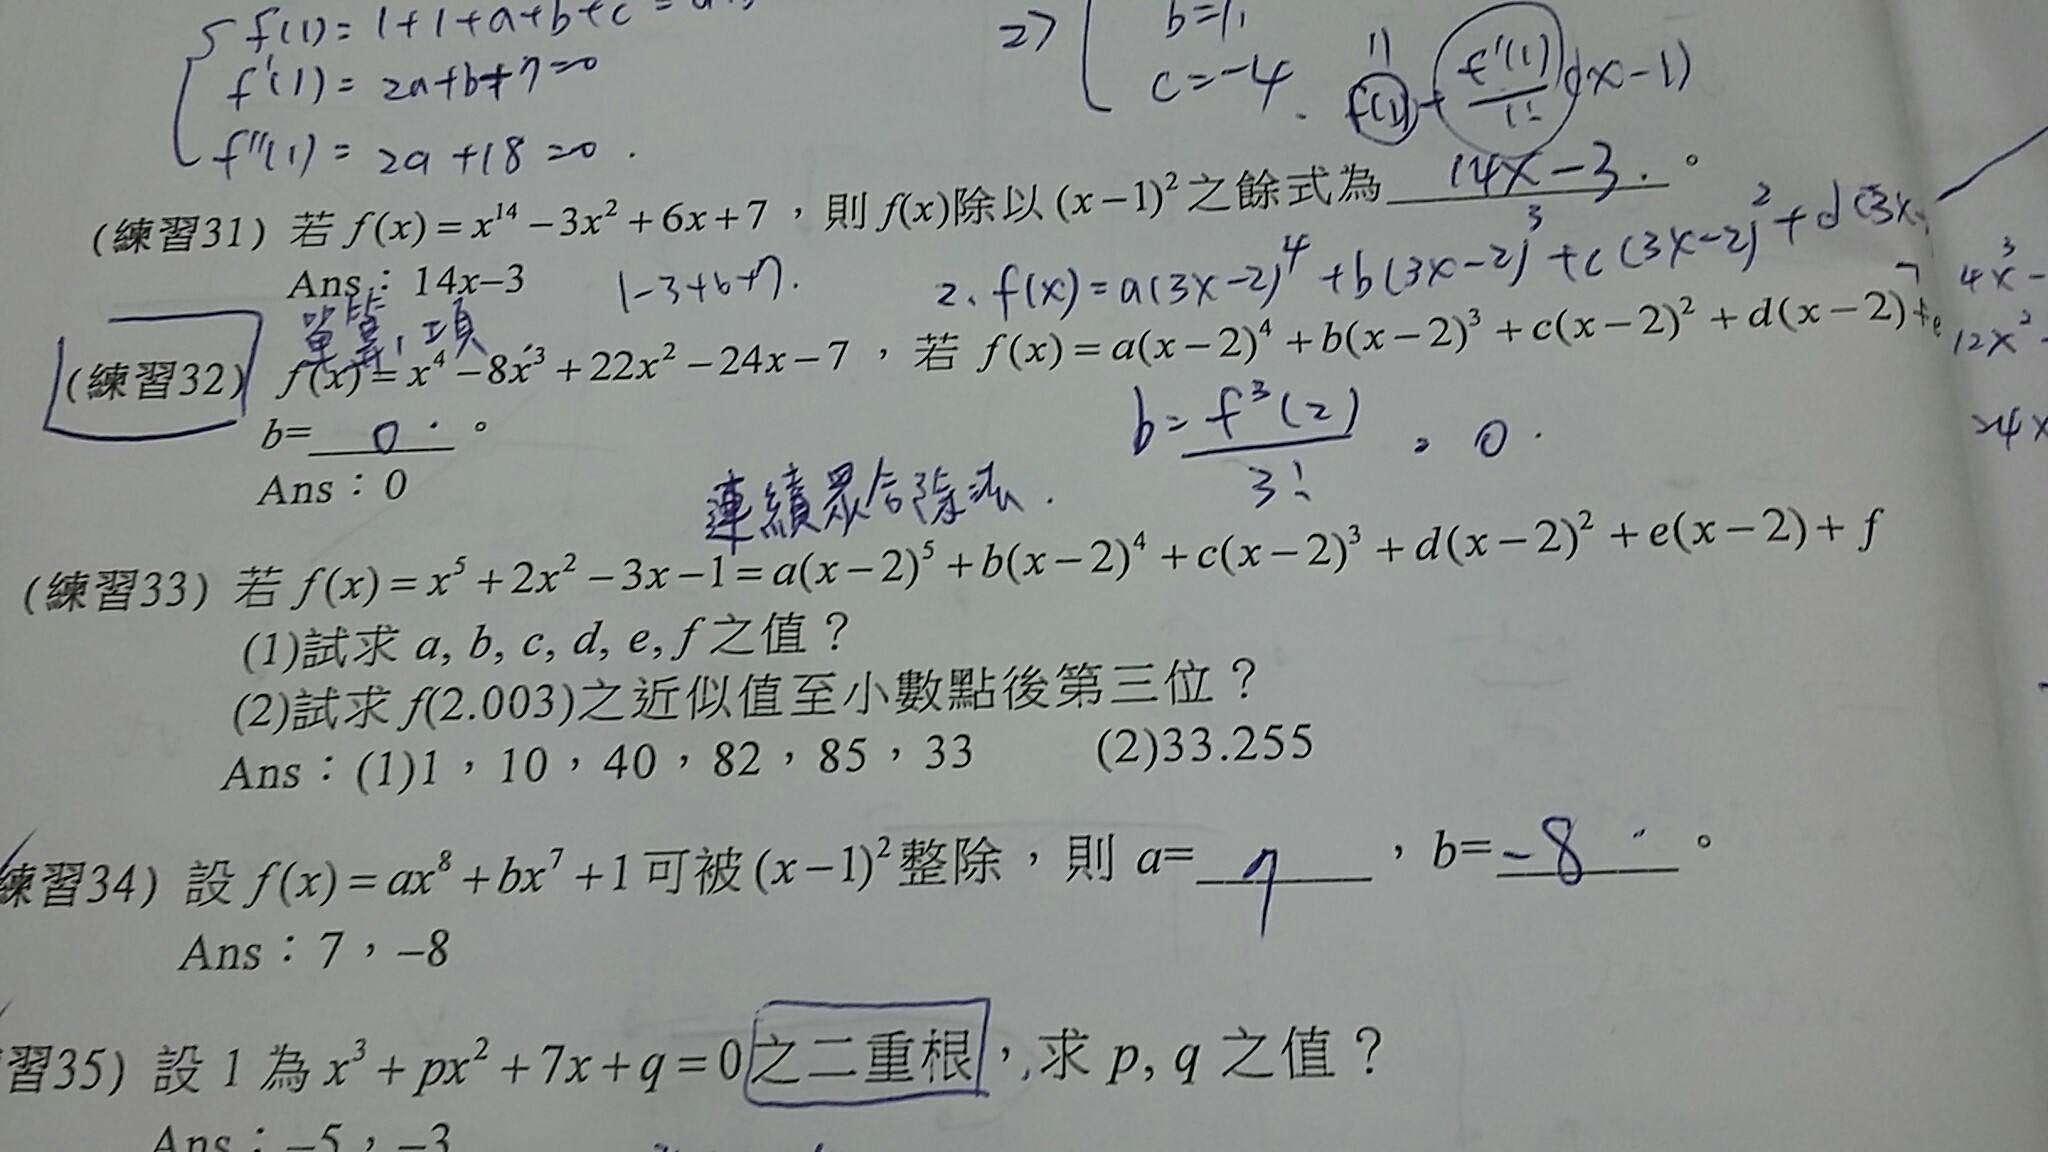 f(1) = 1+1+a+b+c =
f'(1) = 2a+b+7=0
f''(1) = 2a+18=0 .
2> b=1,
c=-4 .
f(1) + f'(1)/1! (x-1)
(練習31) 若 f(x) = x¹⁴ − 3x² + 6x + 7 ,則 f(x)除以 (x−1)² 之餘式為 14x−3 . 。
Ans:14x−3
1-3+6+7.
2、f(x) = a(3x-2)⁴ + b(3x-2)³ + c(3x-2)² + d(3x
4x³ -
12x² -
24x
單算1項
(練習32) f(x) = x⁴ − 8x³ + 22x² − 24x − 7 ,若 f(x) = a(x−2)⁴ + b(x−2)³ + c(x−2)² + d(x−2) + e
b= 0 . 。
Ans:0
b = f³(2)/3! = 0 .
連續眾合除法 .
(練習33) 若 f(x) = x⁵ + 2x² − 3x − 1 = a(x−2)⁵ + b(x−2)⁴ + c(x−2)³ + d(x−2)² + e(x−2) + f
(1)試求 a, b, c, d, e, f 之值?
(2)試求 f(2.003)之近似值至小數點後第三位?
Ans:(1)1,10,40,82,85,33 (2)33.255
練習34) 設 f(x) = ax⁸ + bx⁷ + 1 可被 (x−1)² 整除,則 a= 7 ,b= -8 . 。
Ans:7,−8
習35) 設 1 為 x³ + px² + 7x + q = 0 之二重根,求 p, q 之值?
Ans:−5,−3